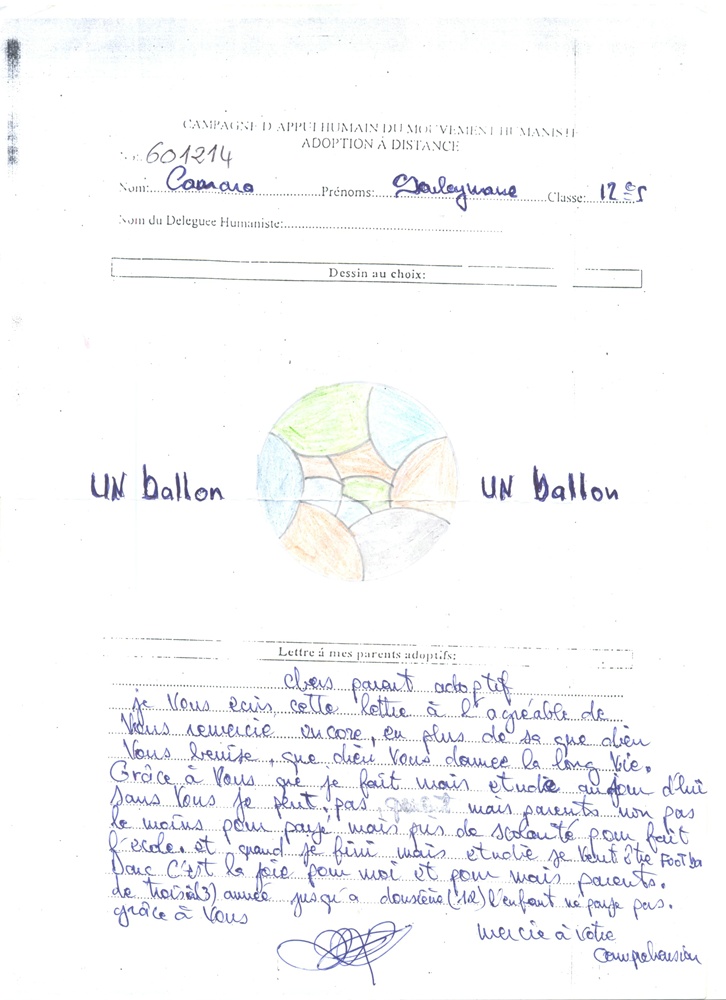 CAMPAGNE D'APPUI HUMAIN DU MOUVEMENT HUMANISTE
ADOPTION À DISTANCE
601214
Nom: Camara Prénoms: Souleymane Classe: 12e S
Nom du Deleguee Humaniste:
Dessin au choix:
UN ballon UN ballon
Lettre à mes parents adoptifs:
chers parent adoptif
je Vous ecris cette lettre à l'agréable de
Vous remercie encore, en plus de sa que dieu
Vous benise, que dieu Vous donnee la long Vie.
Grâce à Vous que je fait mais etudie aujour d'hui
Sans Vous je peut pas mais parents non pas
le moins pour payé mais pris de scolarité pour fait
l'école. et quand je fini mais etudie je Veut être FOOTba
Donc C'est la joie pour moi et pour mais parents.
de troisiè(3) année jusqu'a dousiéne (12) l'enfant ne paye pas.
grâce à Vous
mercie à Votre
Comprehension